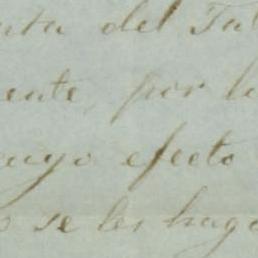 nta del Tu
ente, por l
cuyo efecto
o se les haga